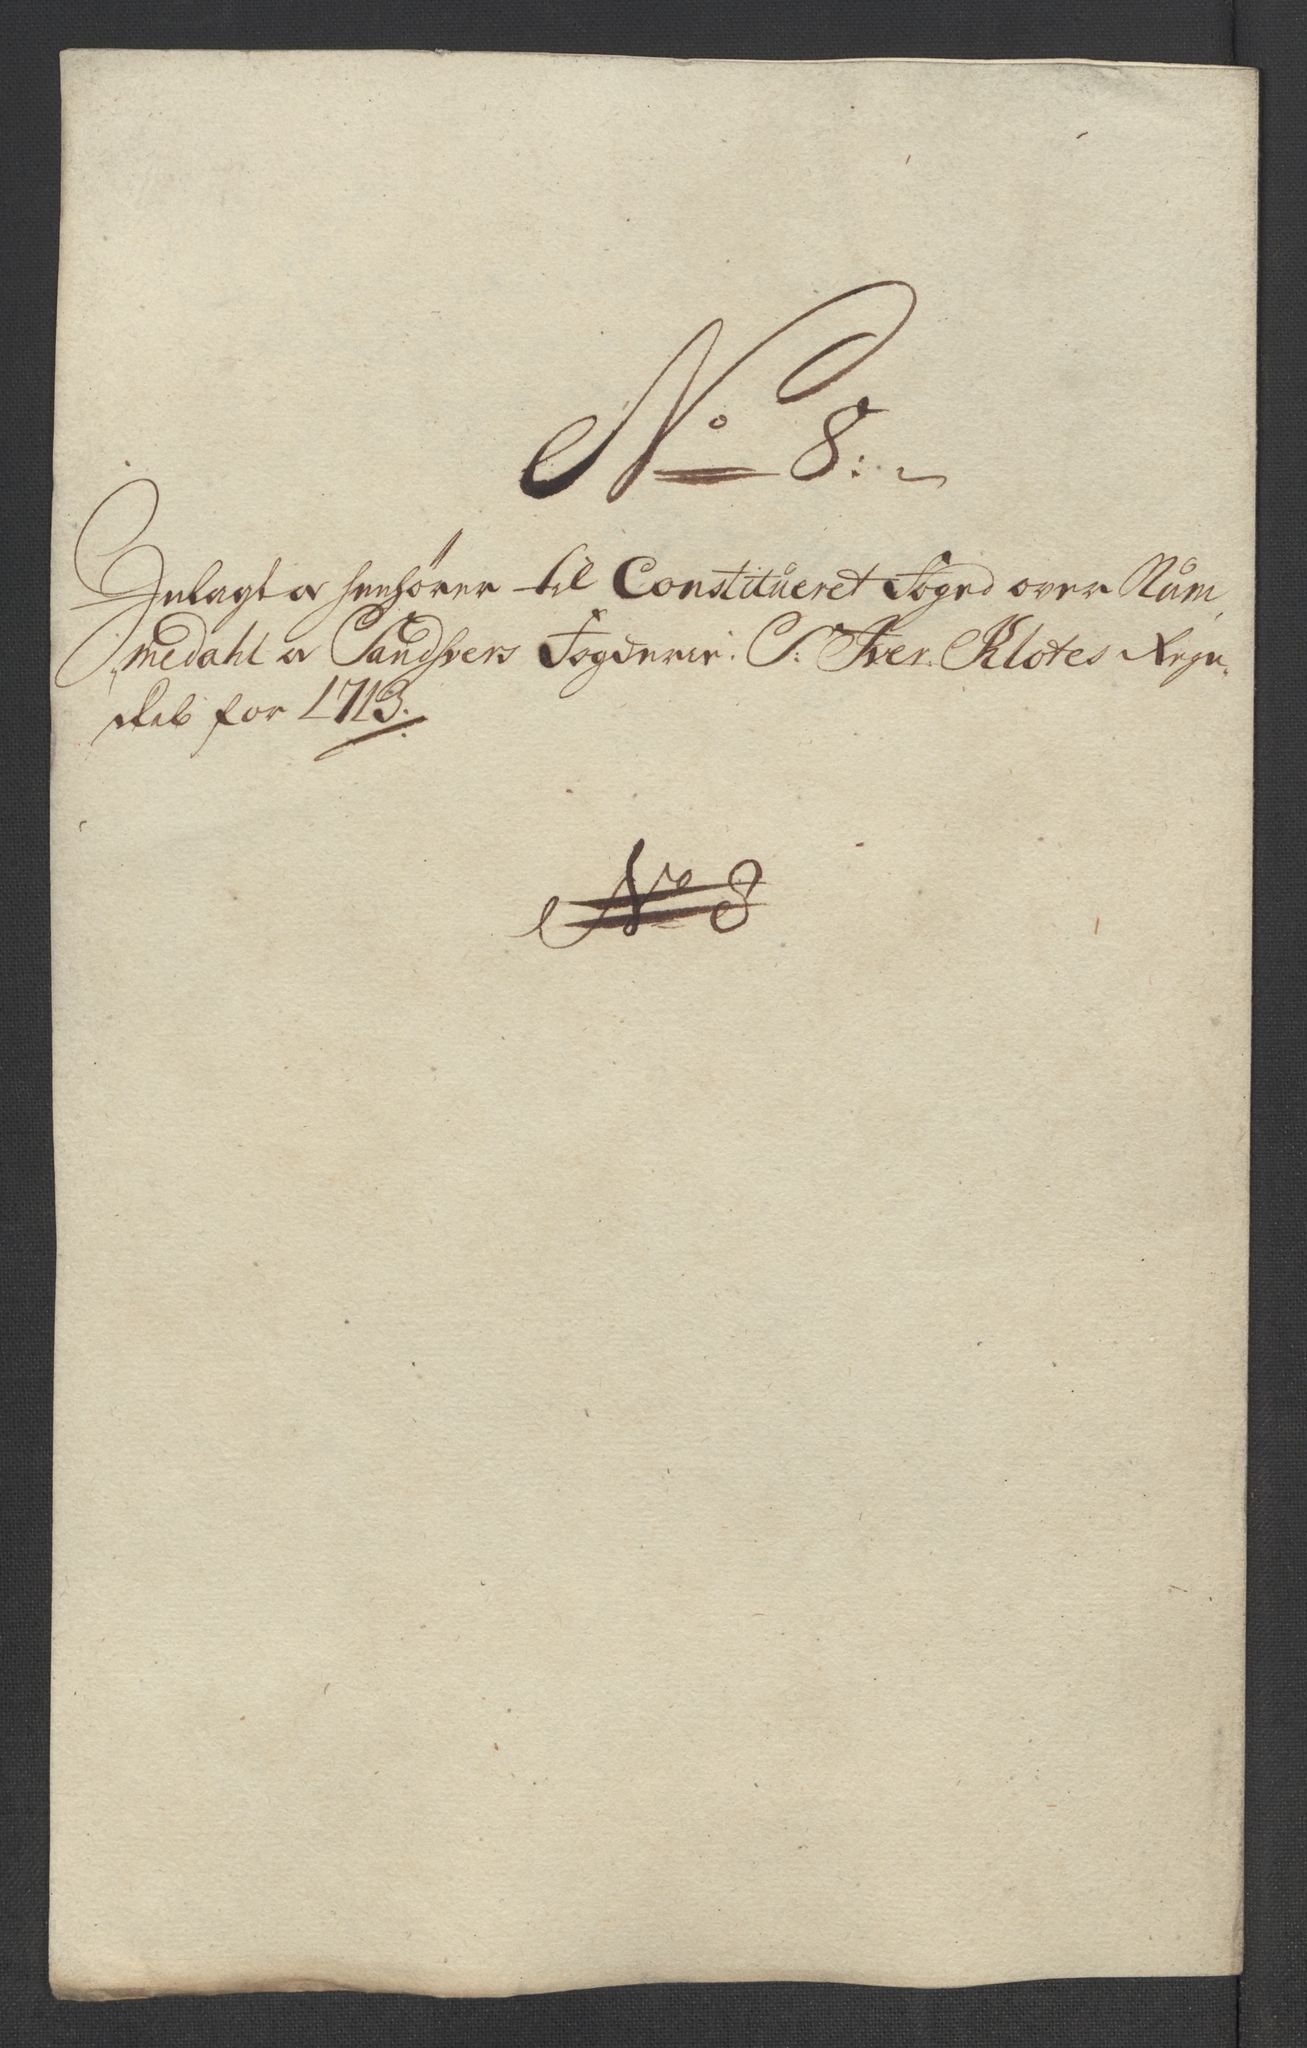 No 8:
Inlagt og henhører til Constitueret Foged over Num,
medahl og Sandsvers Fogderie. Sr: Iver Klotes Regn-
skab for 1713.
No 8